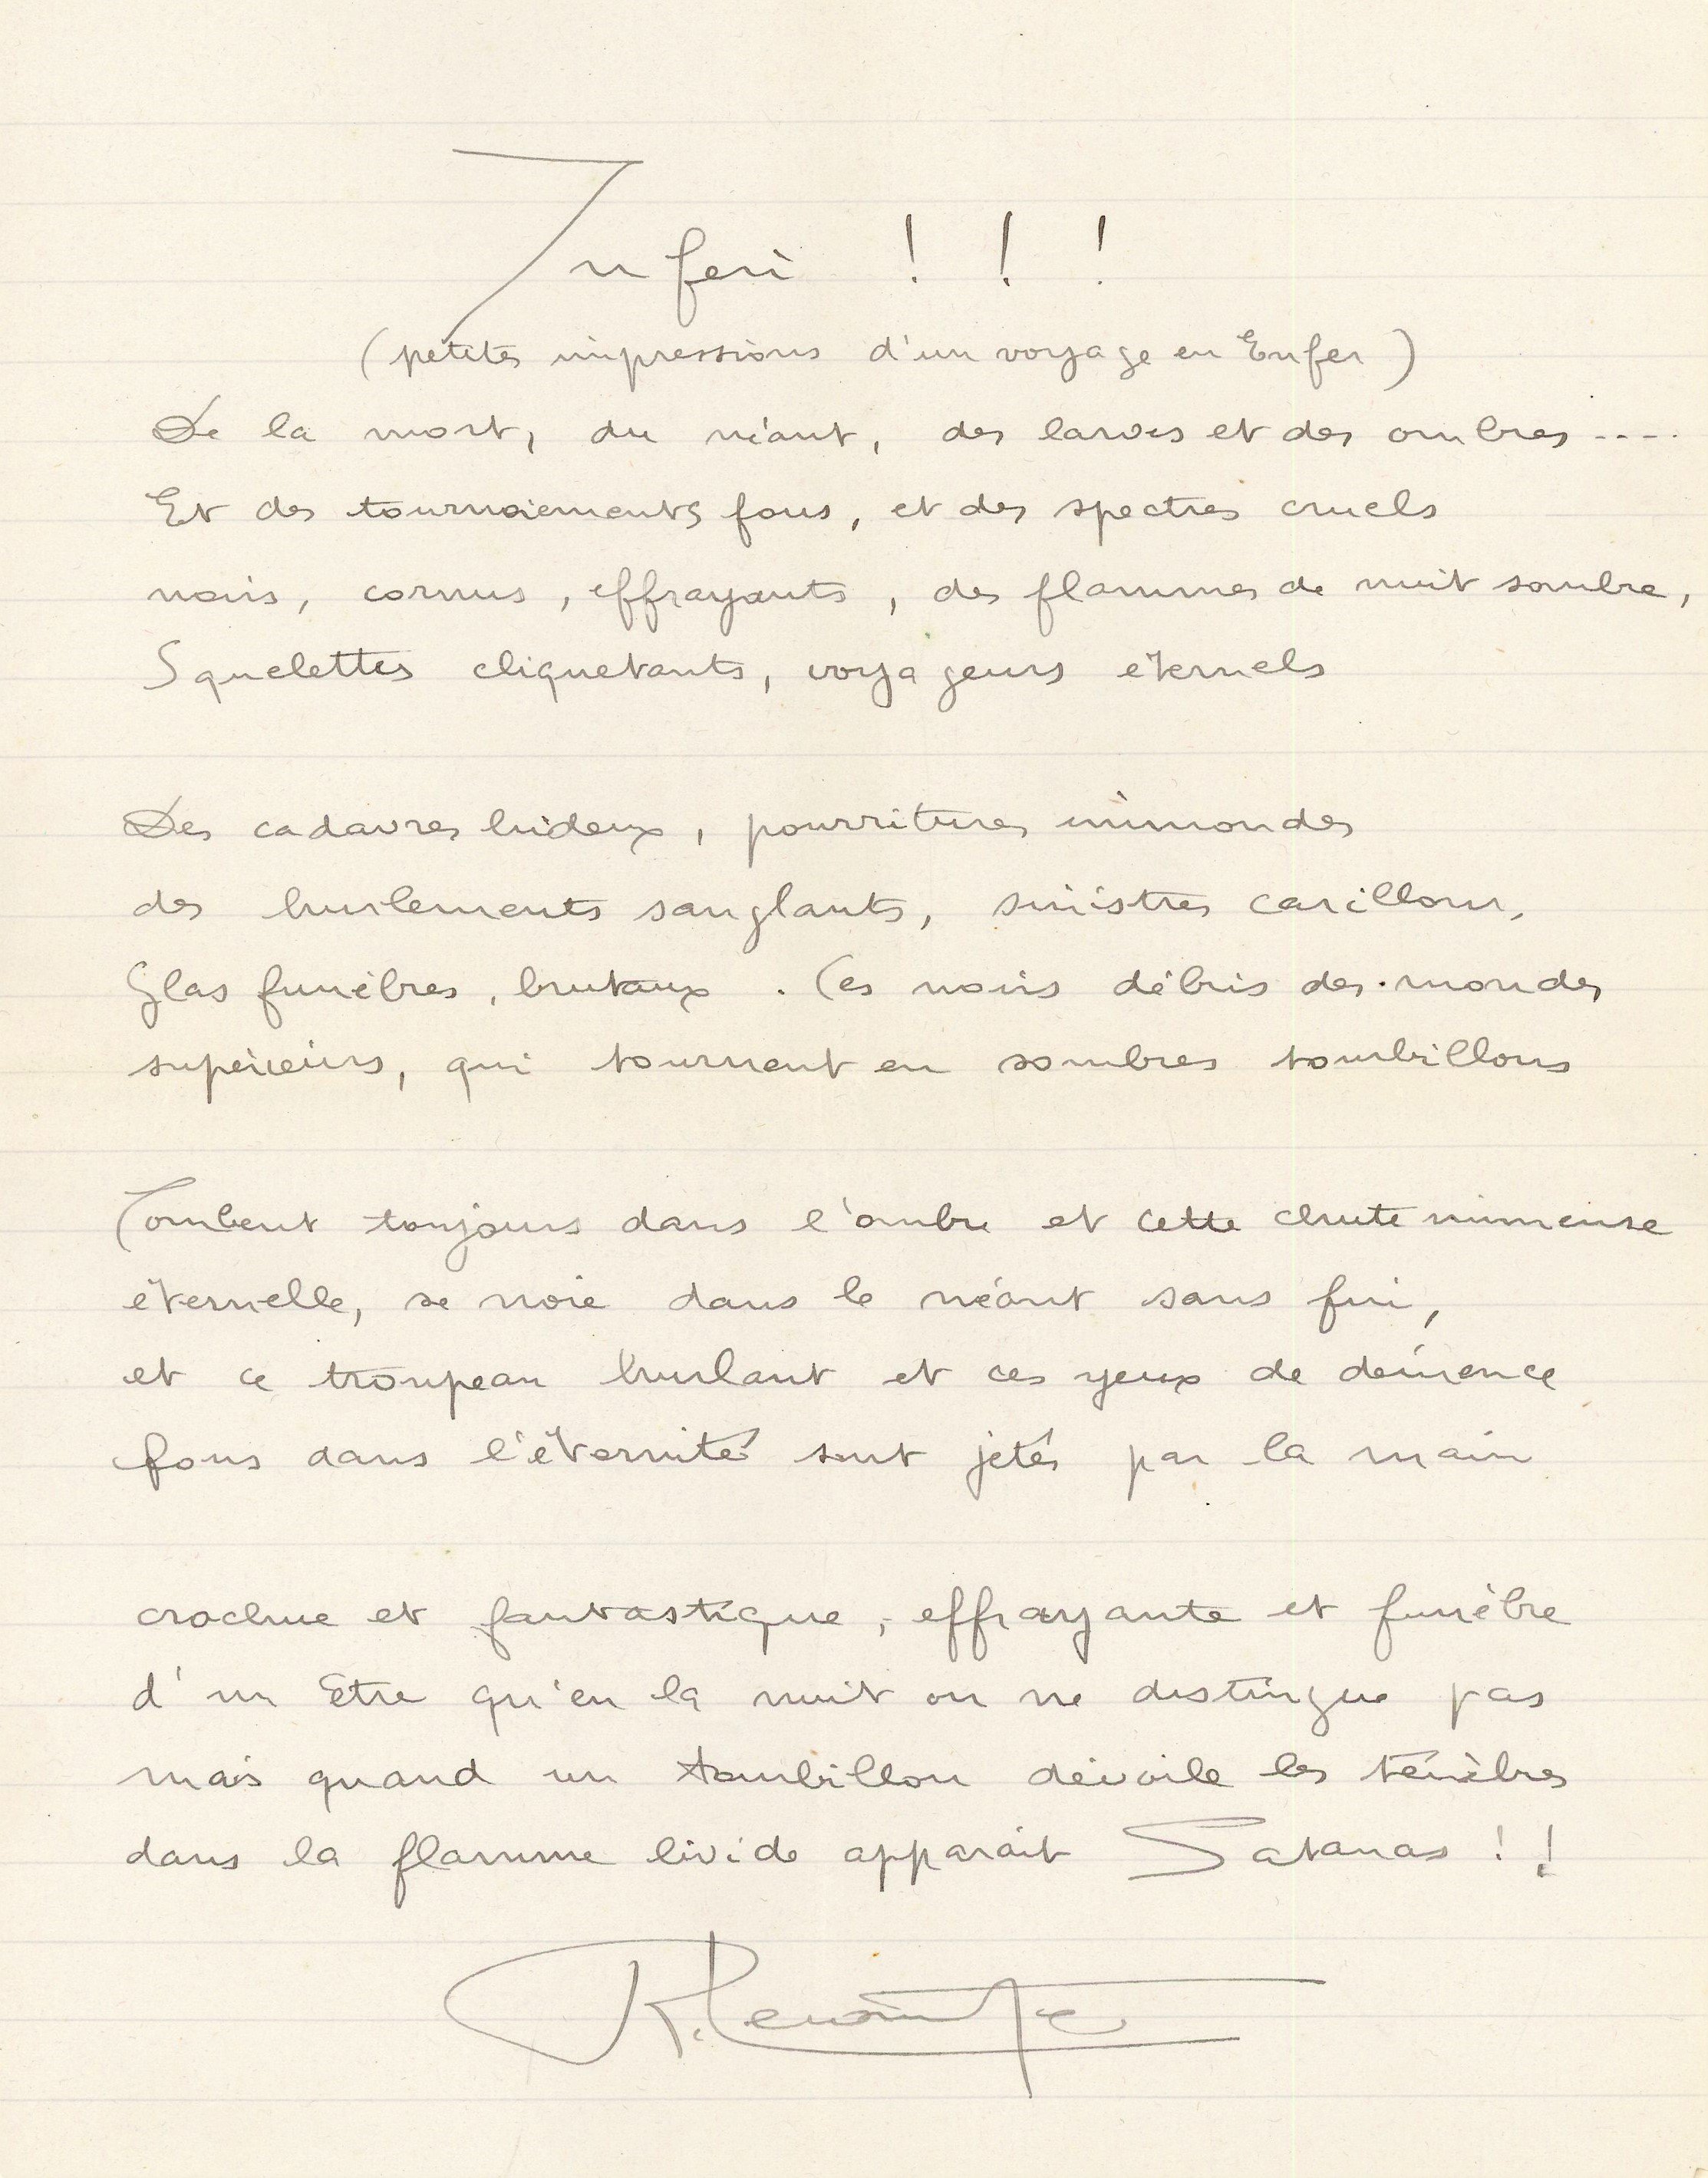 Inferi ! ! !
(petites impressions d'un voyage en Enfer)
De la mort, du néant, des larves et des ombres ....
Et des tournoiements fous, et des spectres cruels
noirs, cornus, effrayants, des flammes de nuit sombre,
Squelettes cliquetants, voyageurs éternels
Des cadavres hideux, pourritures immondes
des hurlements sanglants, sinistres carillons,
Glas funèbres, brutaux. Ces noirs débris des mondes
supérieurs, qui tournent en sombres tourbillons
Tombent toujours dans l'ombre et cette chute immense
éternelle, se noie dans le néant sans fin,
et ce troupeau hurlant et ces yeux de démence
fous dans l'éternité sont jetés par la main
crochue et fantastique, effrayante et funèbre
d'un Etre qu'en la nuit on ne distingue pas
mais quand un tourbillon dévoile les ténèbres
dans la flamme livide apparait Satanas ! !
R.